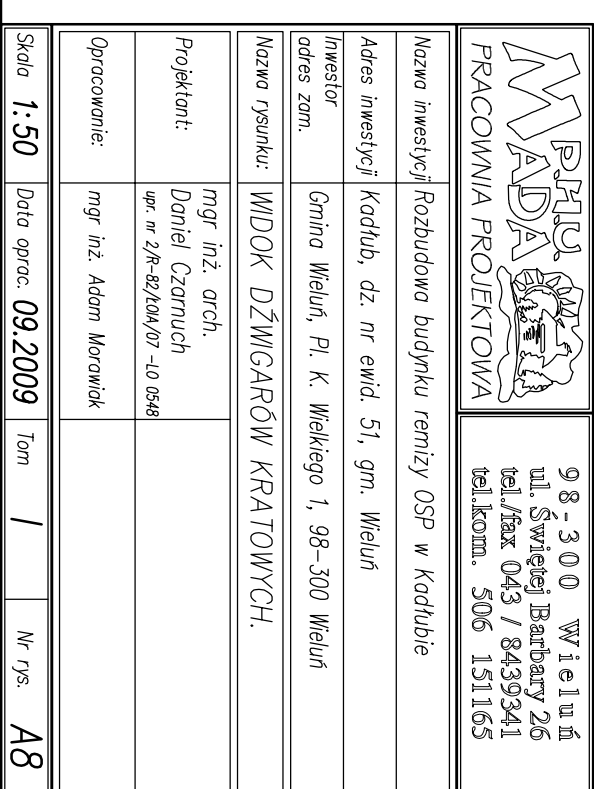 P.H.U.
MADA
PRACOWNIA PROJEKTOWA
98-300 Wieluń
ul. Świętej Barbary 26
tel./fax 043 / 8439341
tel.kom. 506 151165
Nazwa inwestycji Rozbudowa budynku remizy OSP w Kadłubie
Adres inwestycji Kadłub, dz. nr ewid. 51, gm. Wieluń
Inwestor
adres zam.
Gmina Wieluń, Pl. K. Wielkiego 1, 98-300 Wieluń
Nazwa rysunku: WIDOK DŹWIGARÓW KRATOWYCH.
Projektant:
mgr inż. arch.
Daniel Czarnuch
upr. nr 2/R-82/ŁOIA/07 -LO 0548
Opracowanie: mgr inż. Adam Morawiak
Skala 1:50 Data oprac. 09.2009 Tom I Nr rys. A8